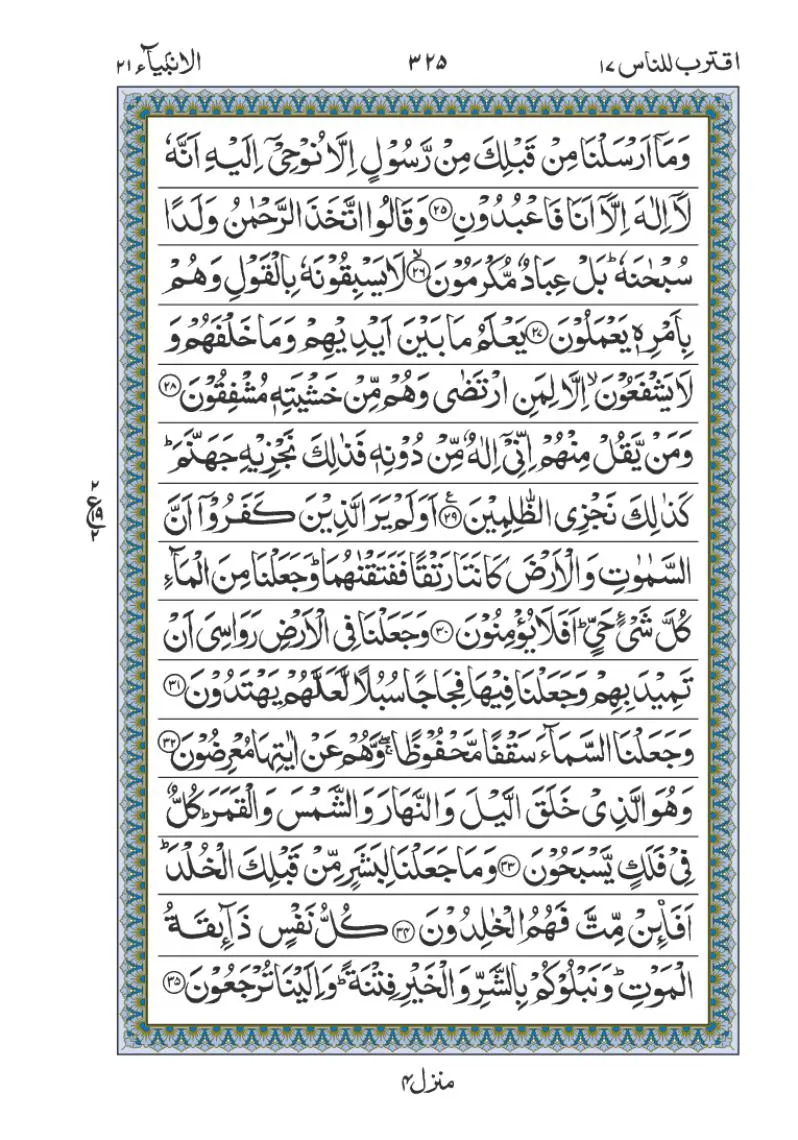 اقترب للناس ۱۷
۳۲۵
الانبیآء ۲۱
وَمَاۤ اَرۡسَلۡنَا مِنۡ قَبۡلِكَ مِنۡ رَّسُوۡلٍ اِلَّا نُوۡحِىۡۤ اِلَيۡهِ اَنَّهٗ
لَاۤ اِلٰهَ اِلَّاۤ اَنَا فَاعۡبُدُوۡنِ ‏﴿۲۵﴾‏ وَقَالُوا اتَّخَذَ الرَّحۡمٰنُ وَلَدًا
سُبۡحٰنَهٗ‌ ؕ بَلۡ عِبَادٌ مُّكۡرَمُوۡنَ ۙ‏ ﴿۲۶﴾‏ لَا يَسۡبِقُوۡنَهٗ بِالۡقَوۡلِ وَهُمۡ
بِاَمۡرِهٖ يَعۡمَلُوۡنَ‏ ﴿۲۷﴾‏ يَعۡلَمُ مَا بَيۡنَ اَيۡدِيۡهِمۡ وَمَا خَلۡفَهُمۡ وَ
لَا يَشۡفَعُوۡنَ ۙ اِلَّا لِمَنِ ارۡتَضٰى وَهُمۡ مِّنۡ خَشۡيَتِهٖ مُشۡفِقُوۡنَ‏ ﴿۲۸﴾‏
وَمَنۡ يَّقُلۡ مِنۡهُمۡ اِنِّىۡۤ اِلٰهٌ مِّنۡ دُوۡنِهٖ فَذٰلِكَ نَجۡزِيۡهِ جَهَنَّمَ‌ؕ
كَذٰلِكَ نَجۡزِى الظّٰلِمِيۡنَ ‏﴿۲۹﴾‏ اَوَلَمۡ يَرَ الَّذِيۡنَ كَفَرُوۡۤا اَنَّ
السَّمٰوٰتِ وَالۡاَرۡضَ كَانَتَا رَتۡقًا فَفَتَقۡنٰهُمَا‌ؕ وَجَعَلۡنَا مِنَ الۡمَآءِ
كُلَّ شَىۡءٍ حَىٍّ‌ؕ اَفَلَا يُؤۡمِنُوۡنَ‏ ﴿۳۰﴾‏ وَجَعَلۡنَا فِى الۡاَرۡضِ رَوَاسِىَ اَنۡ
تَمِيۡدَ بِهِمۡ وَجَعَلۡنَا فِيۡهَا فِجَاجًا سُبُلًا لَّعَلَّهُمۡ يَهۡتَدُوۡنَ‏ ﴿۳۱﴾‏
وَجَعَلۡنَا السَّمَآءَ سَقۡفًا مَّحۡفُوۡظًا ‌ۖۚ وَّهُمۡ عَنۡ اٰيٰتِهَا مُعۡرِضُوۡنَ‏ ﴿۳۲﴾‏
وَهُوَ الَّذِىۡ خَلَقَ الَّيۡلَ وَالنَّهَارَ وَالشَّمۡسَ وَالۡقَمَرَ‌ؕ كُلٌّ
فِىۡ فَلَكٍ يَّسۡبَحُوۡنَ‏ ﴿۳۳﴾‏ وَمَا جَعَلۡنَا لِبَشَرٍ مِّنۡ قَبۡلِكَ الۡخُـلۡدَ‌ ؕ
اَفَا۟ٮِٕن مِّتَّ فَهُمُ الۡخٰـلِدُوۡنَ‏ ﴿۳۴﴾‏ كُلُّ نَفۡسٍ ذَآٮِٕقَةُ
الۡمَوۡتِ‌ؕ وَنَبۡلُوۡكُمۡ بِالشَّرِّ وَالۡخَيۡرِ فِتۡنَةً‌ ؕ وَاِلَيۡنَا تُرۡجَعُوۡنَ‏ ﴿۳۵﴾‏
منزل ۴